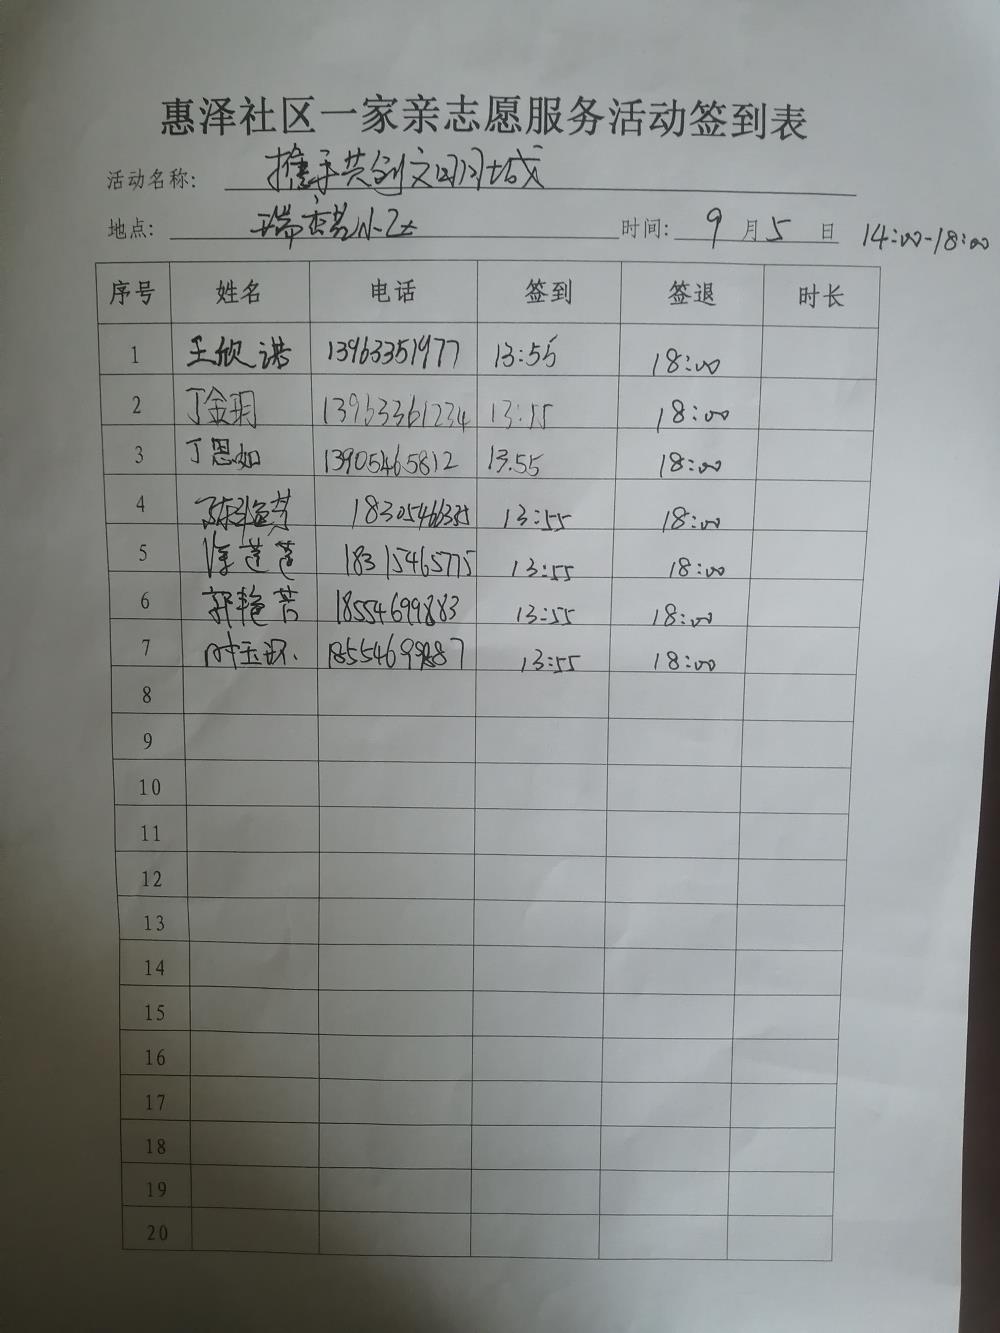 惠泽社区一家亲志愿服务活动签到表
活动名称: 携手共创文明城
地点: 瑞香苑小区 时间: 9 月 5 日 14:00-18:00
序号 姓名 电话 签到 签退 时长
1 王欣诺 13963351977 13:55 18:00
2 丁金玥 13963361234 13:55 18:00
3 丁恩如 13905465812 13.55 18:00
4 13:55 18:00
5 徐莲莲 18315465775 13:55 18:00
6 郭艳芳 18554699883 13:55 18:00
7 时玉环 13:55 18:00
8
9
10
11
12
13
14
15
16
17
18
19
20